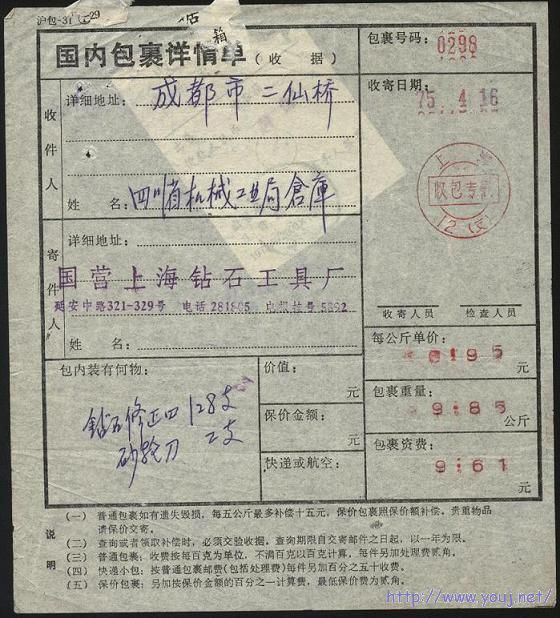 沪包-31
29
箱
国内包裹详情单(收 据)
包裹号码:
0298
收件人
详细地址: 成都市二仙桥
收寄日期:
75 4 16
上 海
收包专用
12(支)
姓 名: 四川省机械工业局倉庫
寄件人
详细地址:
国营上海钻石工具厂
延安中路321-329号 电话 281805 电报挂号 5892
姓 名:
收寄人员 检查人员
每公斤单价:
0195
元
包内装有何物:
钻石修正 128支
砂轮刀 2支
价值:
元
保价金额:
元
快递或航空:
包裹重量:
9:85
公斤
包裹资费:
9:61
元
说明
(一) 普通包裹如有遗失毁损,每五公斤最多补偿十五元,保价包裹照保价额补偿。贵重物品
请保价交寄。
(二) 查询或者领取补偿时,必须交验收据。查询期限自交寄邮件之日起,以一年为限。
(三) 普通包裹:收费按每百克为单位,不满百克以百克计算,每件另加处理费贰角。
(四) 快递小包:按普通包裹邮费(包括处理费)每件另加百分之五十收费。
(五) 保价包裹:另加按保价金额的百分之一计算费,最低保价费为贰角。
http://www.youj.net/